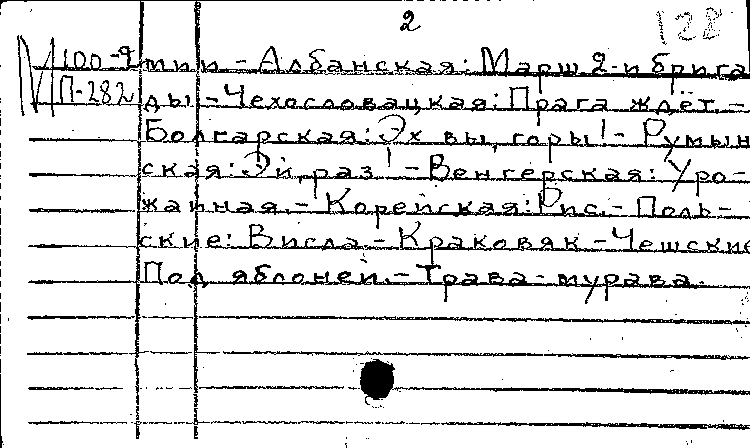 2
128
М 100-2 тии.-Албанская: Марш 2-й брига
П-282 ды.-Чехословацкая: Прага ждёт.-
Болгарская: Эх вы, горы!-Румын
ская: Эй, раз!-Венгерская: Уро-
жайная.-Корейская: Рис.-Поль-
ские: Висла.-Краковяк.-Чешские
Под яблоней.-Трава-мурава.